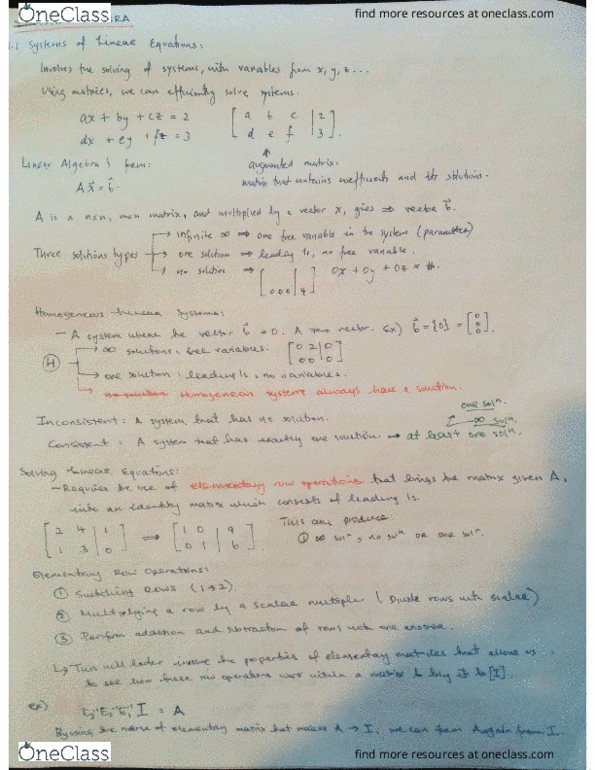 OneClass
find more resources at oneclass.com
1.1 Systems of Linear Equations:
Involves the solving of systems, with variables from x, y, z...
Using matrices, we can efficiently solve systems.
ax + by + cz = 2
dx + ey + fz = 3
[ a b c | 2
d e f | 3 ].
augmented matrix:
matrix that contains coefficients and its solutions.
Linear Algebra's form:
Ax⃗ = b⃗.
A is a nxn, mxn matrix, and multiplied by a vector x, gives ⇒ vector b⃗.
Three solutions types
→ infinite ∞ ⇒ one free variable in the system (parameter)
→ one solution ⇒ leading 1s, no free variable.
→ no solution ⇒ [ 0 0 0 | 4 ] 0x + 0y + 0z = #.
Homogeneous Linear Systems:
- A system where the vector b⃗ = 0. A zero vector. Ex) b⃗ = {0} = [ 0 0 0 ].
(H)
→ ∞ solutions: free variables. [ 0 2 | 0
0 0 | 0 ]
→ one solution: leading 1s, no variables.
→ no solution Homogeneous systems always have a solution.
Inconsistent: A system that has no solution.
one solⁿ
∞ solⁿ.
Consistent: A system that has exactly one solution → at least one solⁿ.
Solving Linear Equations:
- Requires the use of elementary row operations that brings the matrix given A,
into an identity matrix which consists of leading 1s.
[ 2 4 | 1
1 3 | 0 ] ⇒ [ 1 0 | a
0 1 | b ].
This can produce
① ∞ solⁿ, no solⁿ or one solⁿ.
Elementary Row Operations:
① Switching Rows (1→2).
② Multiplying a row by a scalar multiple (Divide rows with scalar)
③ Perform addition and subtraction of rows with one another.
↳ This will later involve the properties of elementary matrices that allows us
to see how these row operations work within a matrix to bring it to [I].
ex) E₃⁻¹E₂⁻¹E₁⁻¹ I = A
By using the inverse of elementary matrix that makes A → I, we can form A again from I.
OneClass
find more resources at oneclass.com